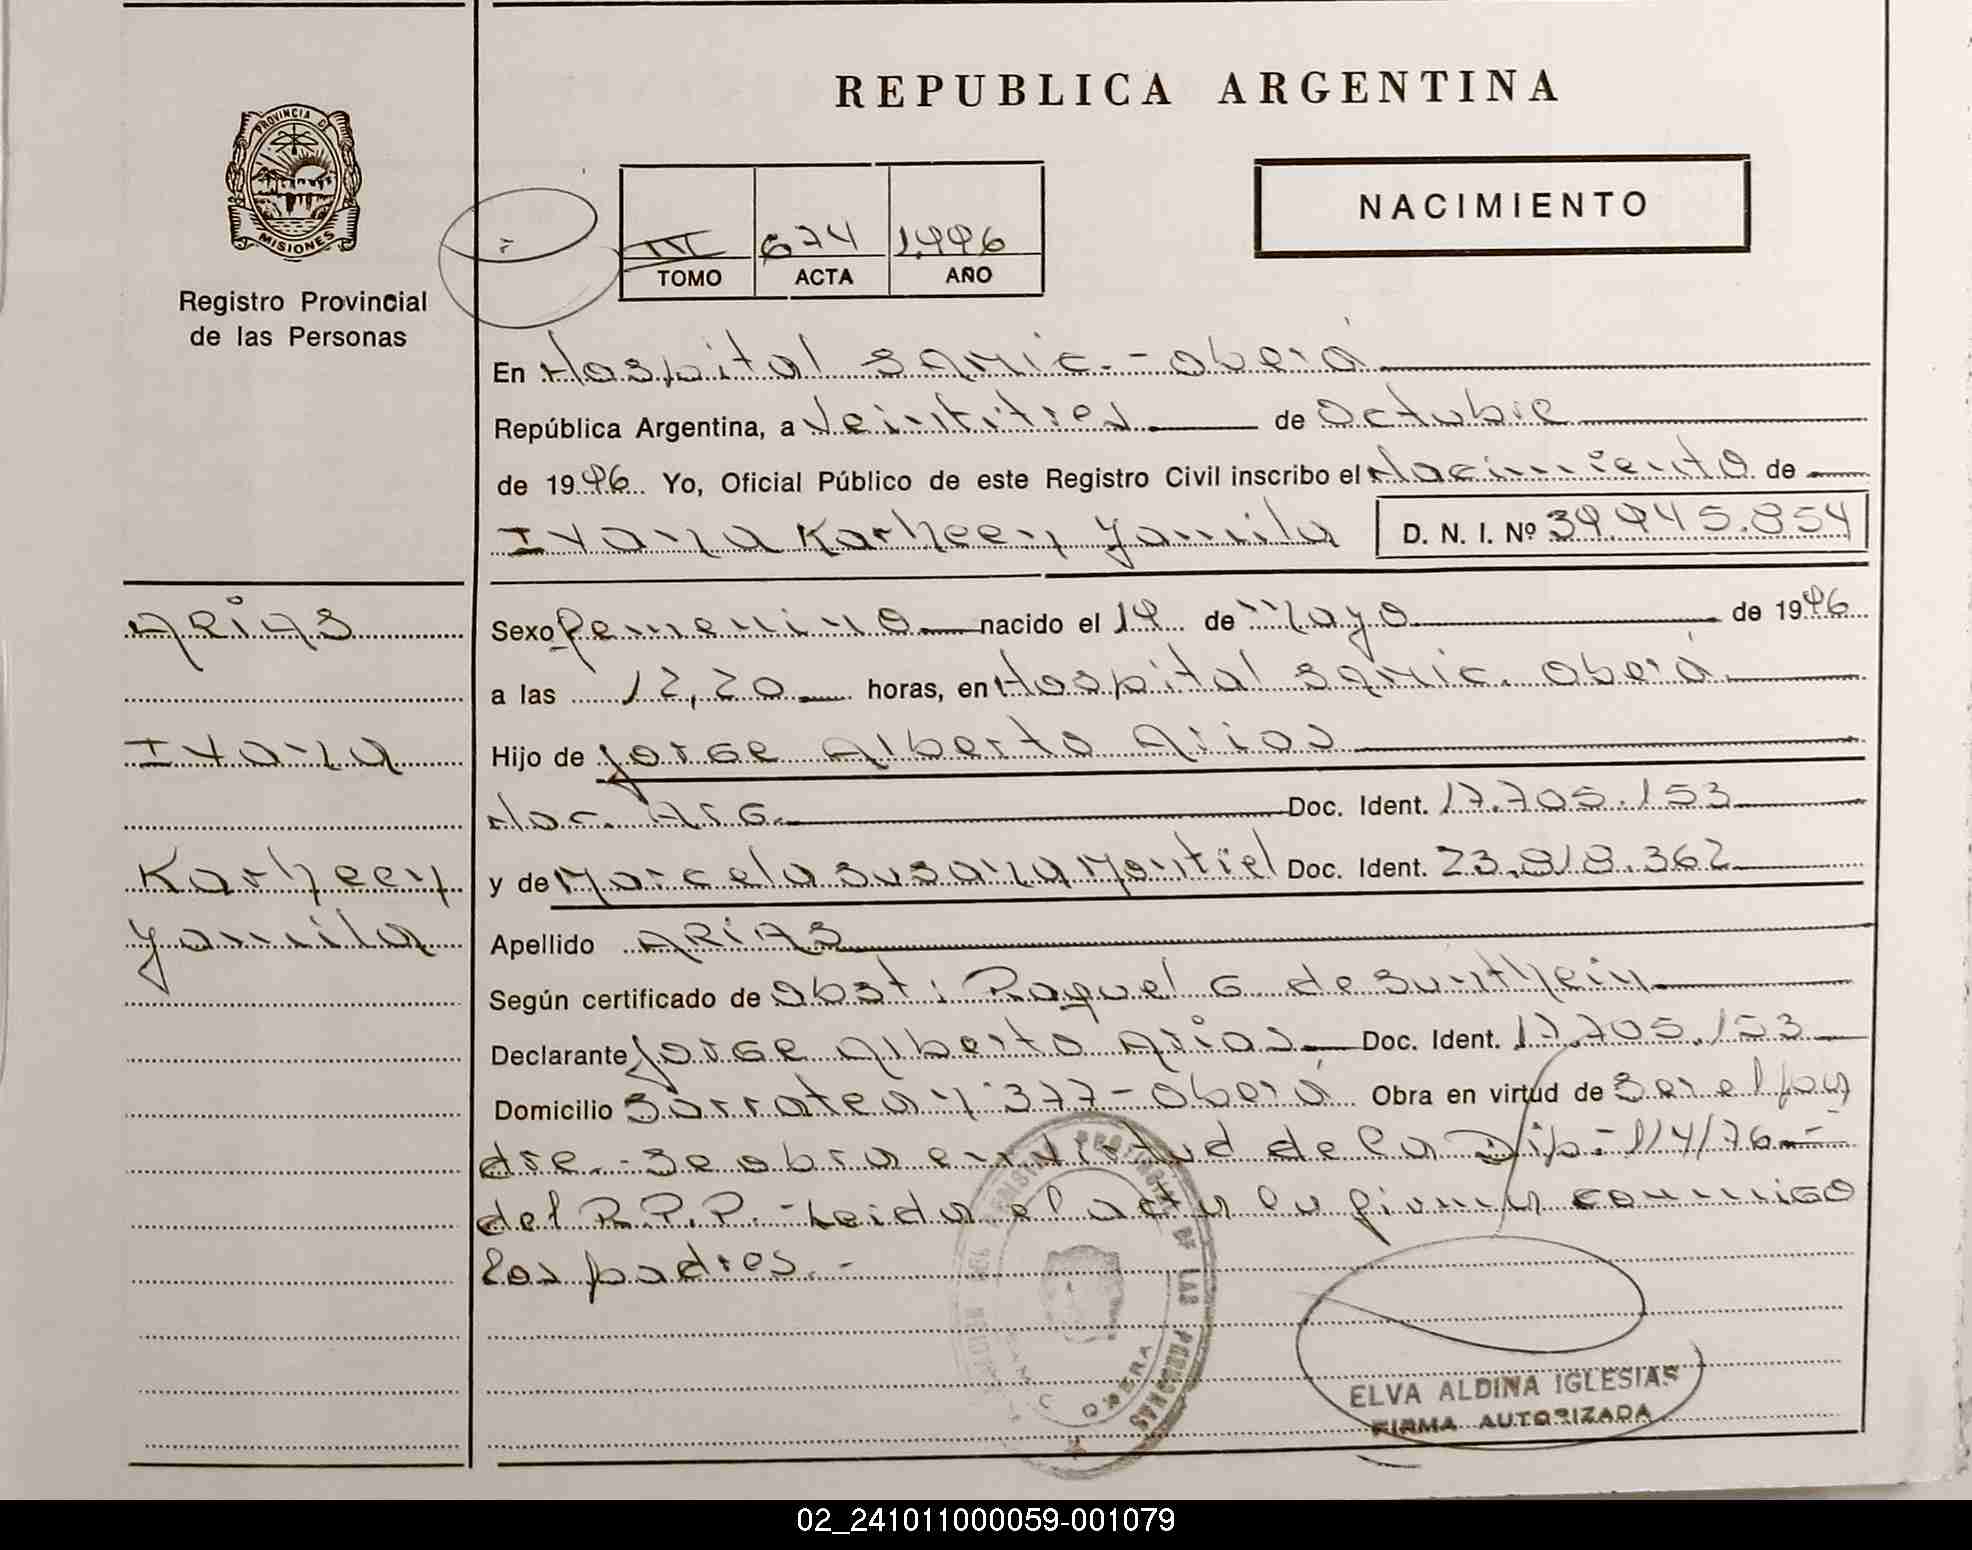 REPUBLICA ARGENTINA
PROVINCIA DE
MISIONES
Registro Provincial
de las Personas
III 674 1.996
TOMO ACTA AÑO
NACIMIENTO
En Hospital Samic.-Oberá
República Argentina, a Veintitres de Octubre
de 1996. Yo, Oficial Público de este Registro Civil inscribo el Nacimiento de
Ivana Karheen Yamila D. N. I. Nº 39.945.854
ARIAS
Ivana
Karheen
Yamila
Sexo Femenino nacido el 19 de Mayo de 1996
a las 12,20 horas, en Hospital Samic. Oberá
Hijo de Jorge Alberto Arias
Nac. Arg. Doc. Ident. 17.705.153
y de Marcela Susana Montiel Doc. Ident. 23.818.362
Apellido ARIAS
Según certificado de Obst: Raquel G de Sunthein
Declarante Jorge Alberto Arias Doc. Ident. 17.705.153
Domicilio Sarratea Nº 377-Oberá Obra en virtud de Ser el pa
dre.-Se obra en virtud de la Disp. 114/76.-
del R.P.P.-Leida el acta la firman conmigo
los padres.-
REGISTRO PROVINCIAL DE LAS PERSONAS
OBERA
ELVA ALDINA IGLESIAS
FIRMA AUTORIZADA
02_241011000059-001079